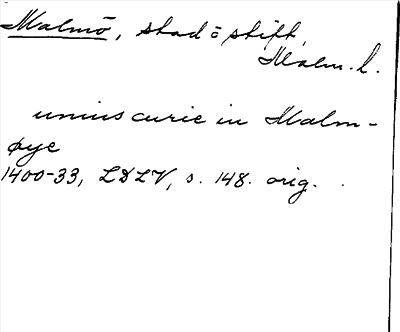 Malmö, stad o stift,
Malm. l.
unius curie in Malm-
øye
1400-33, LDLV, s. 148. orig.